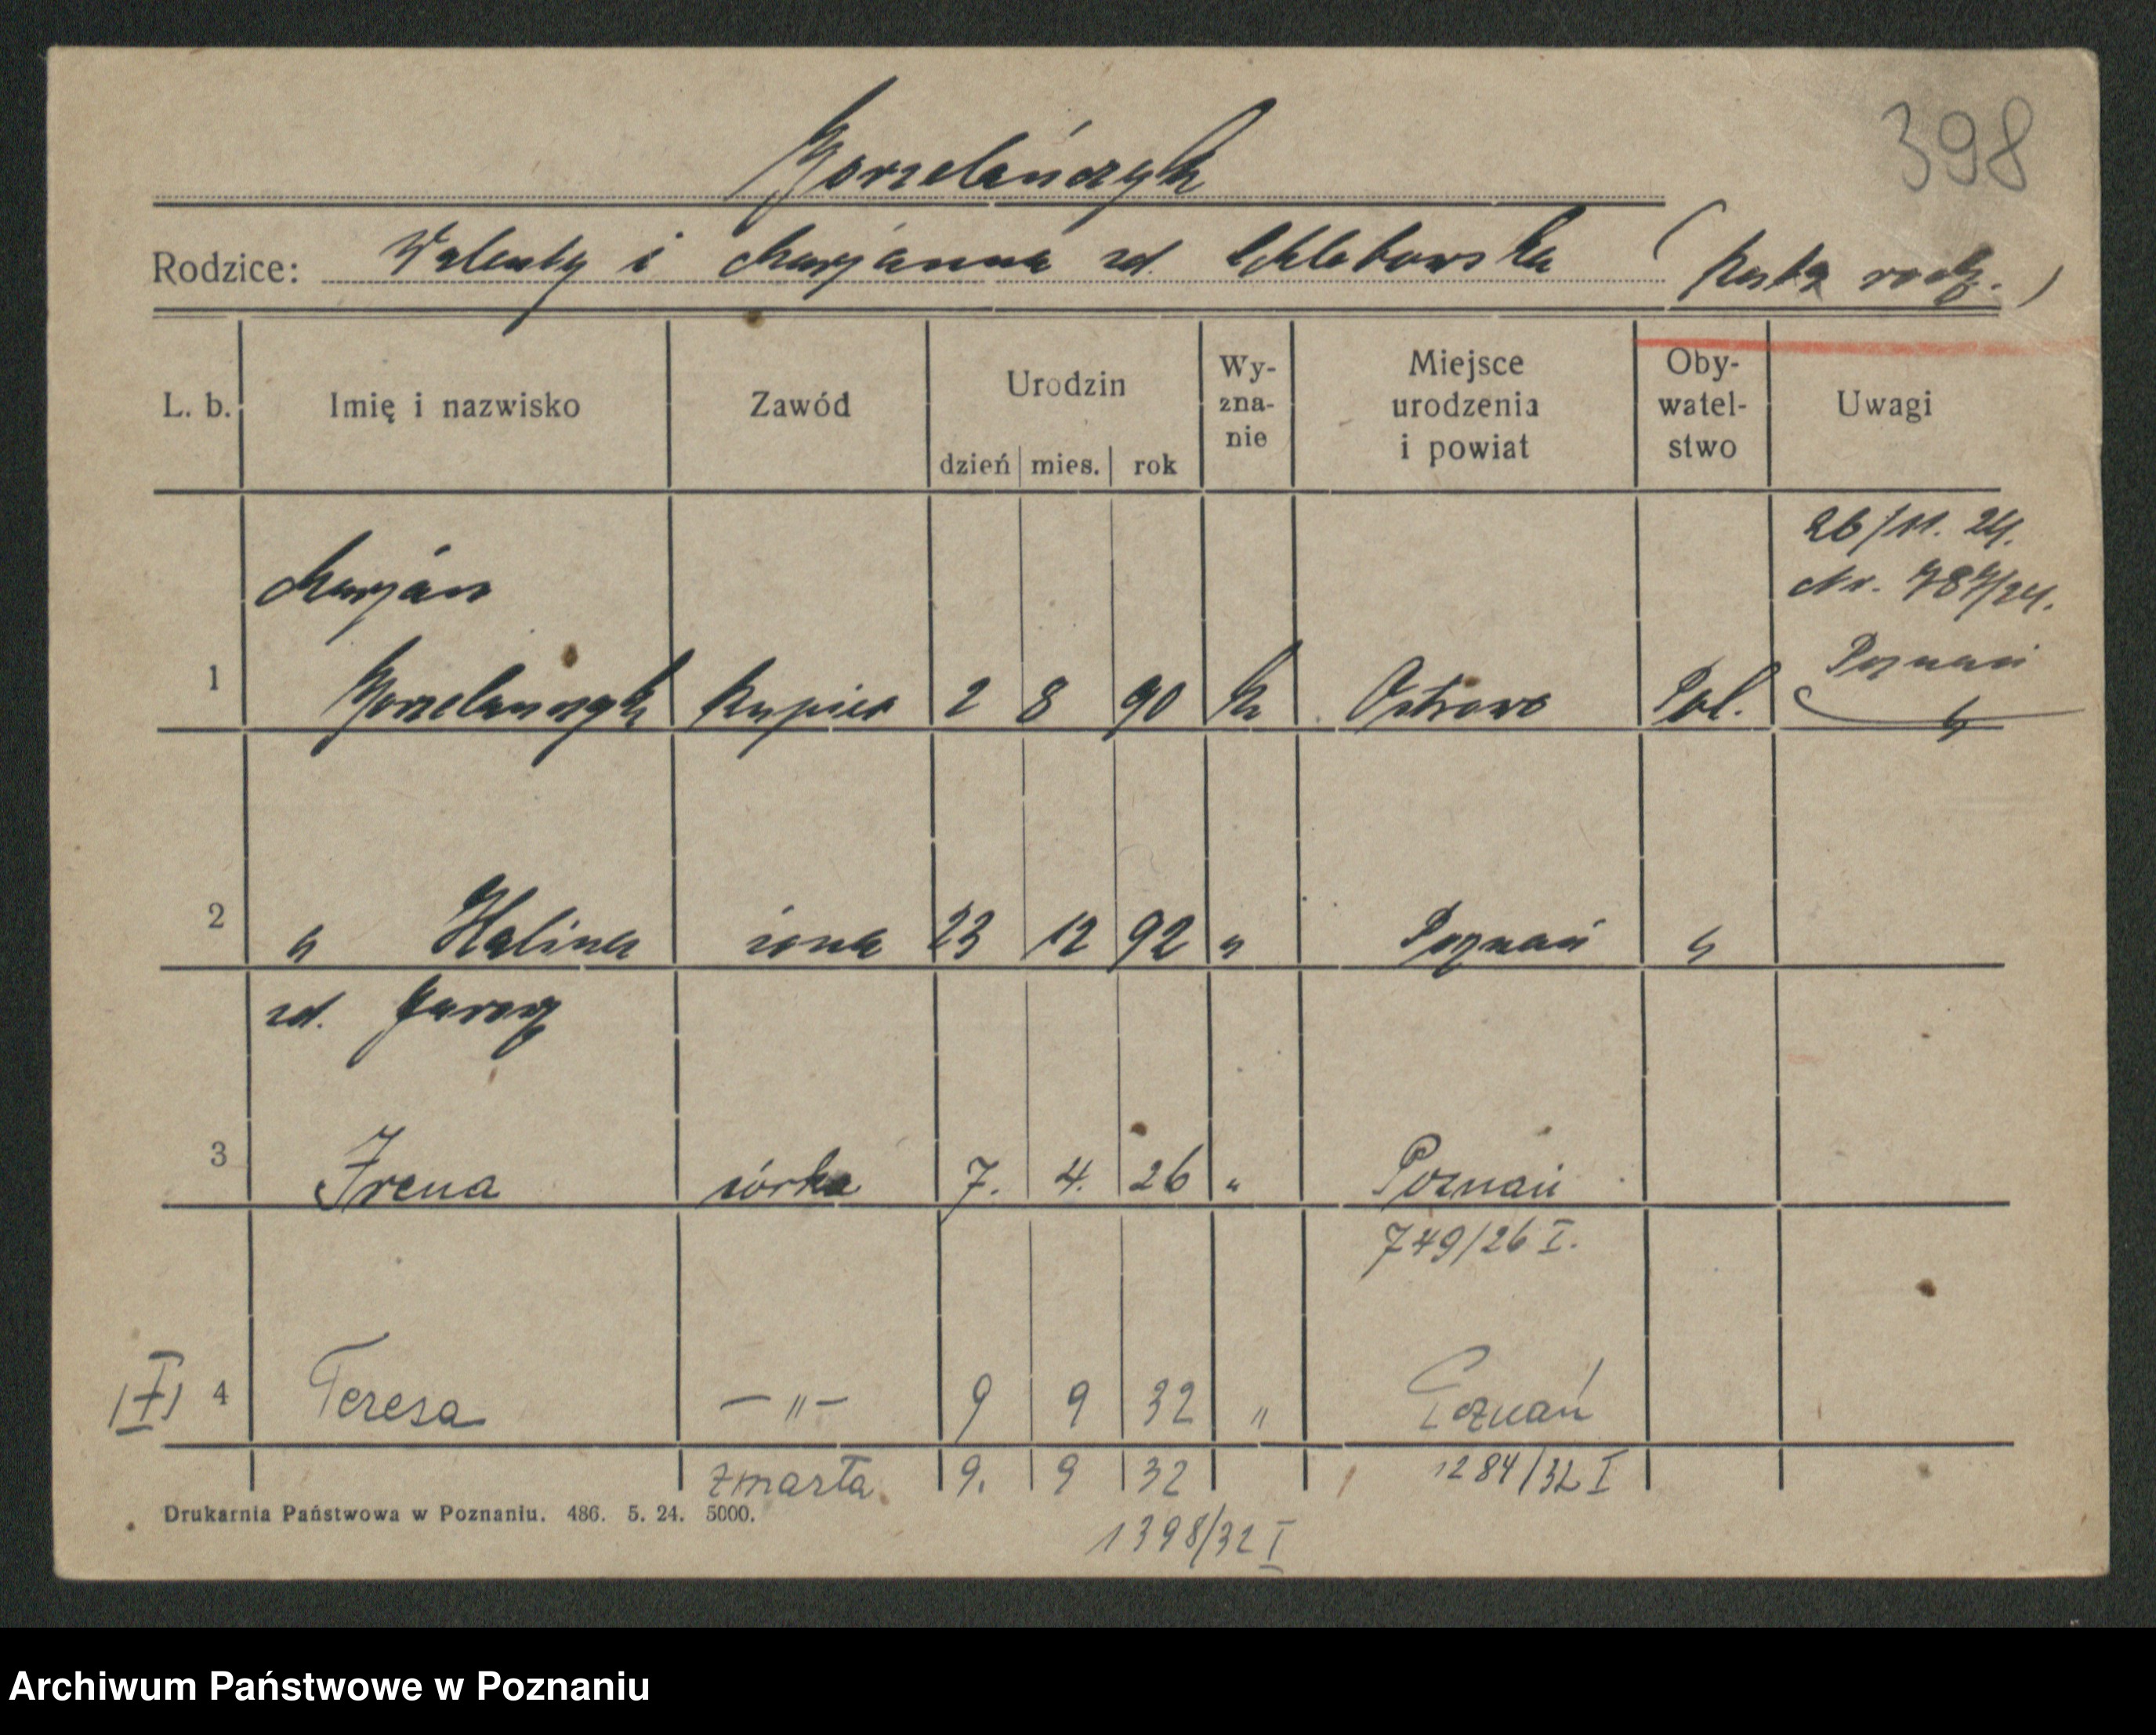 398
Gorzelańczyk
Rodzice: Walenty i Marjanna zd. Chlebowska (Karta rodz.)
L. b. Imię i nazwisko Zawód Urodzin dzień mies. rok Wy-zna-nie Miejsce urodzenia i powiat Oby-watel-stwo Uwagi
26/11. 24.
Nr. 787/24.
Marjan
Poznań
1 Gorzelanczyk Kupiec 2 8 90 k Ostrowo Pol. "
2 " Halina żona 23 12 92 " Poznań "
zd.
3 Irena córka 7. 4. 26 " Poznań
749/26 I.
I 4 Teresa — " — 9 9 32 " Poznań
zmarła 9. 9 32 1284/32 I
Drukarnia Państwowa w Poznaniu. 486. 5. 24. 5000.
1398/32 I
Archiwum Państwowe w Poznaniu